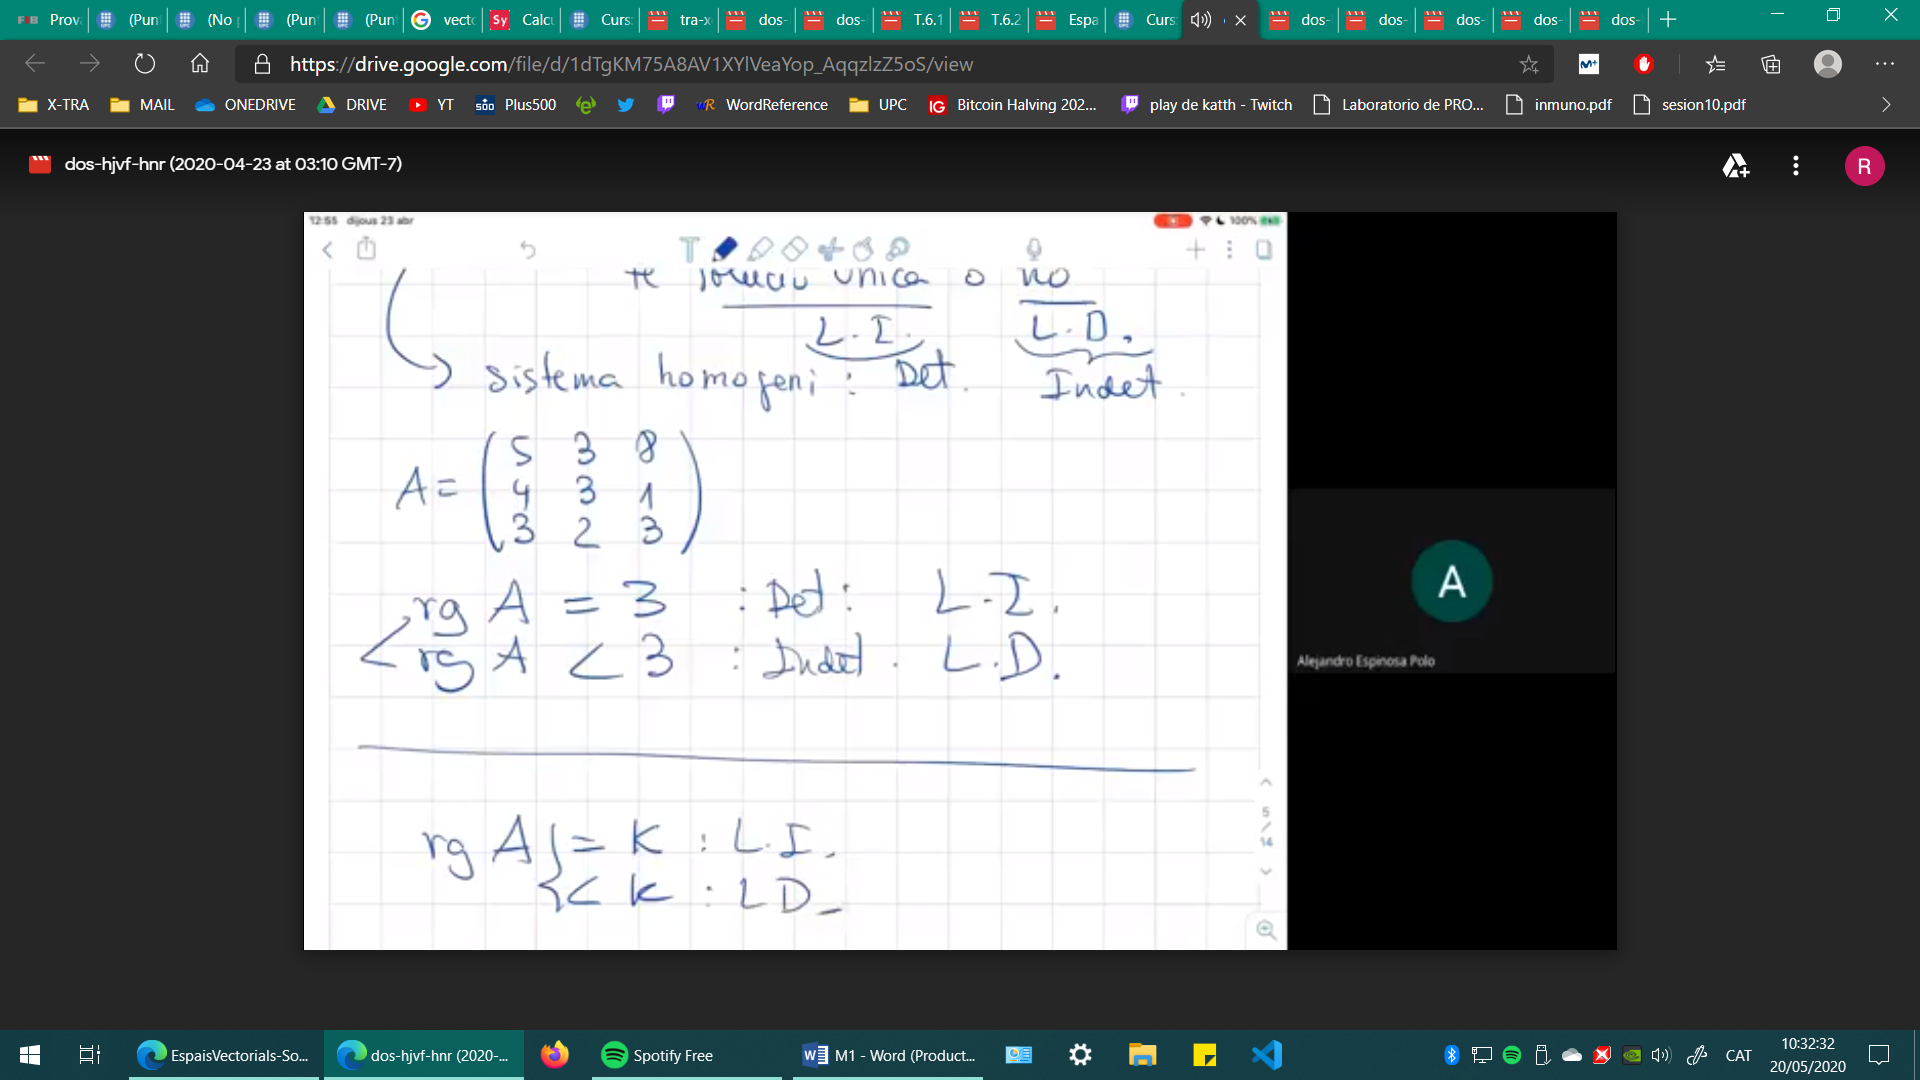 Prov
(Pun
(No
(Pun
(Pun
vecto
Calcu
Curs
tra-x
dos-
dos-
T.6.1
T.6.2
Espa
Curs
dos-
dos-
dos-
dos-
dos-
https://drive.google.com/file/d/1dTgKM75A8AV1XYlVeaYop_AqqzlzZ5oS/view
X-TRA MAIL ONEDRIVE DRIVE YT Plus500 WordReference UPC Bitcoin Halving 202... play de katth - Twitch Laboratorio de PRO... inmuno.pdf sesion10.pdf
dos-hjvf-hnr (2020-04-23 at 03:10 GMT-7)
R
12:55 dijous 23 abr 100%
té solució única o no
L.I. L.D.
sistema homogeni : Det. Indet.
A = ( 5 3 8
4 3 1
3 2 3 )
rg A = 3 : Det : L.I.
rg A < 3 : Indet. L.D.
rg A { = K : L.I.
< K : L D
5
/
14
A
Alejandro Espinosa Polo
EspaisVectorials-So... dos-hjvf-hnr (2020-... Spotify Free M1 - Word (Product... CAT 10:32:32
20/05/2020